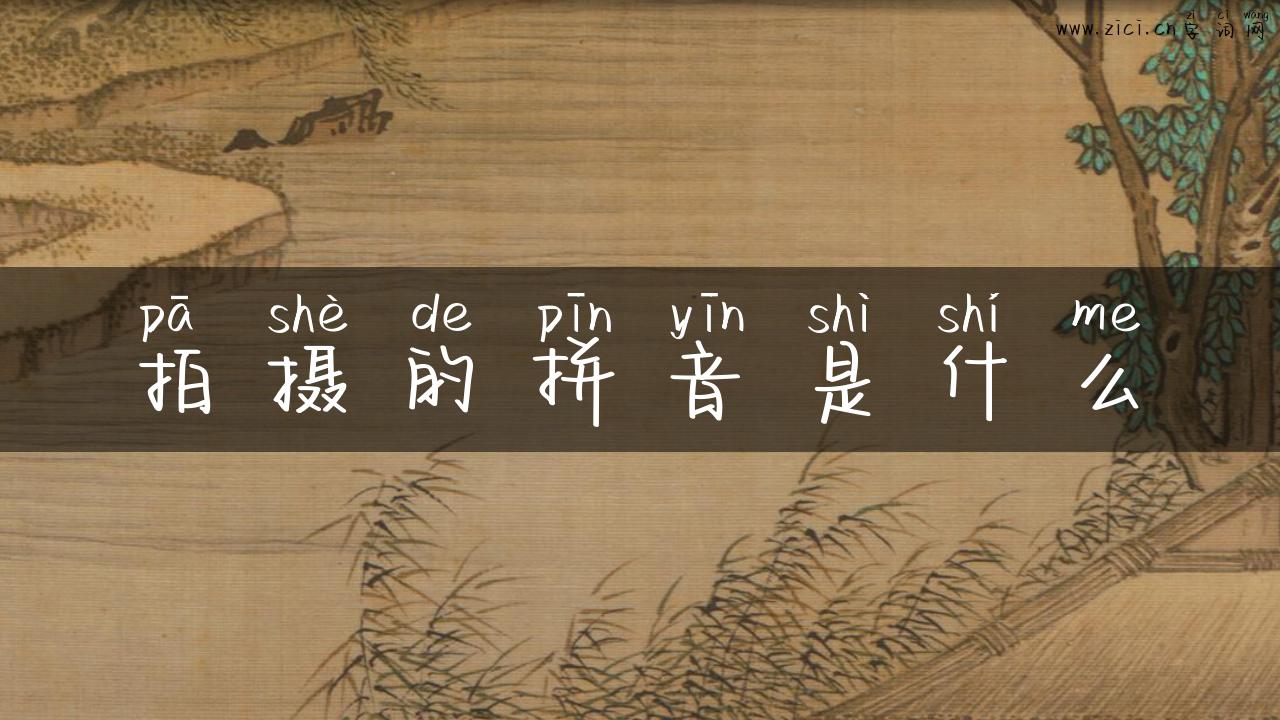 zì cí wǎng
www.zici.cn字词网
pā shè de pīn yīn shì shí me
拍摄的拼音是什么